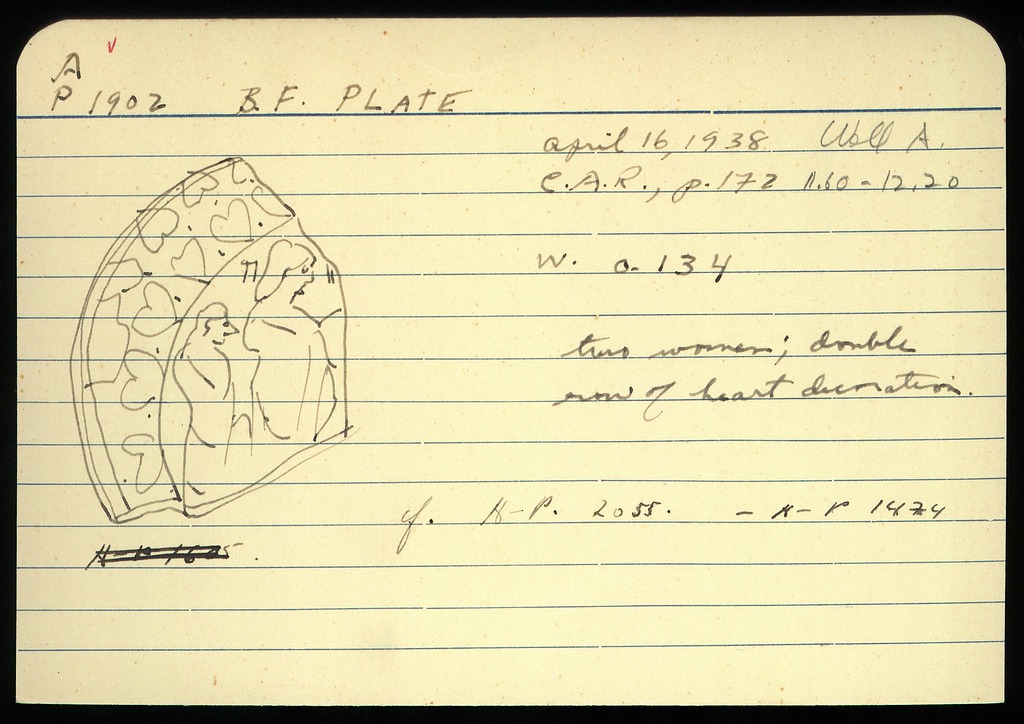 A
P 1902 B.F. PLATE
april 16, 1938 Well A.
C.A.R., p. 172 11.60 - 12.20
W. 0.134
two women; double
row of heart decoration.
cf. A-P. 2055. - A-P 1474